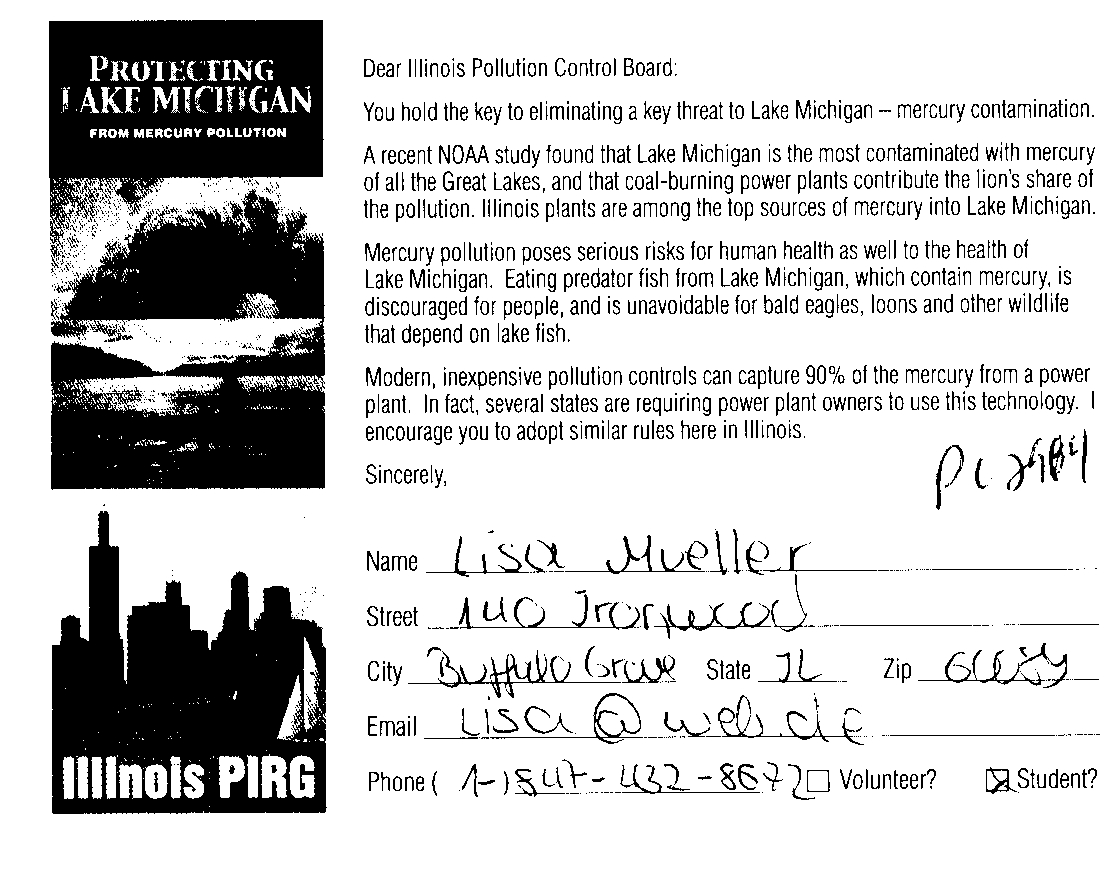 PROTECTING
LAKE MICHIGAN
FROM MERCURY POLLUTION
Dear Illinois Pollution Control Board:
You hold the key to eliminating a key threat to Lake Michigan – mercury contamination.
A recent NOAA study found that Lake Michigan is the most contaminated with mercury
of all the Great Lakes, and that coal-burning power plants contribute the lion's share of
the pollution. Illinois plants are among the top sources of mercury into Lake Michigan.
Mercury pollution poses serious risks for human health as well to the health of
Lake Michigan. Eating predator fish from Lake Michigan, which contain mercury, is
discouraged for people, and is unavoidable for bald eagles, loons and other wildlife
that depend on lake fish.
Modern, inexpensive pollution controls can capture 90% of the mercury from a power
plant. In fact, several states are requiring power plant owners to use this technology. I
encourage you to adopt similar rules here in Illinois.
Sincerely,
Name Lisa Mueller
Street 140 Ironwood
City Buffalo Grove State IL Zip
Email Lisa@web.de
Phone (1-)847-432-8672 Volunteer? Student?
Illinois PIRG